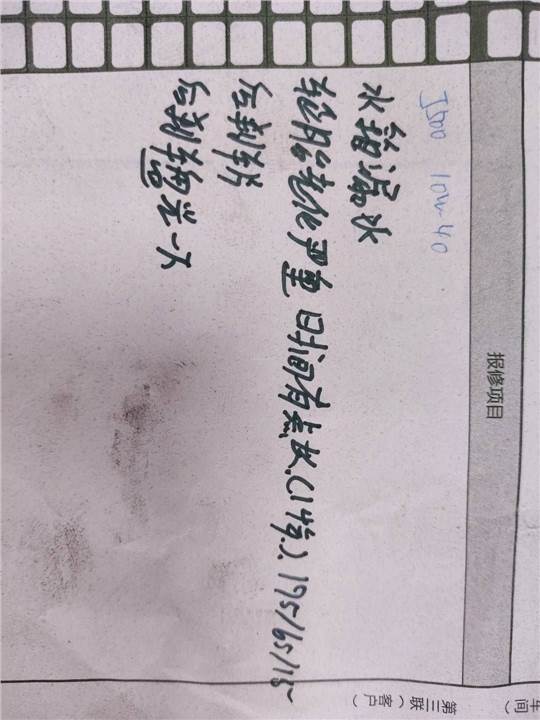 报修项目
J500 10w-40
水箱漏水
轮胎老化严重 时间有点长(14年) 195/65/15
后刹车片
后刹车
第三联(客户)
车间)